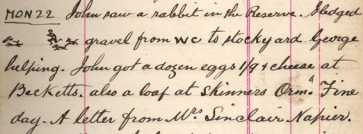 MON 22 John saw a rabbit in the Reserve. Sledged
gravel from WC to stockyard George
helping. John got a dozen eggs 1/9 & cheese at
Becketts. also a loaf at Skinners Ormd. Fine
day. A letter from Mrs Sinclair Napier.